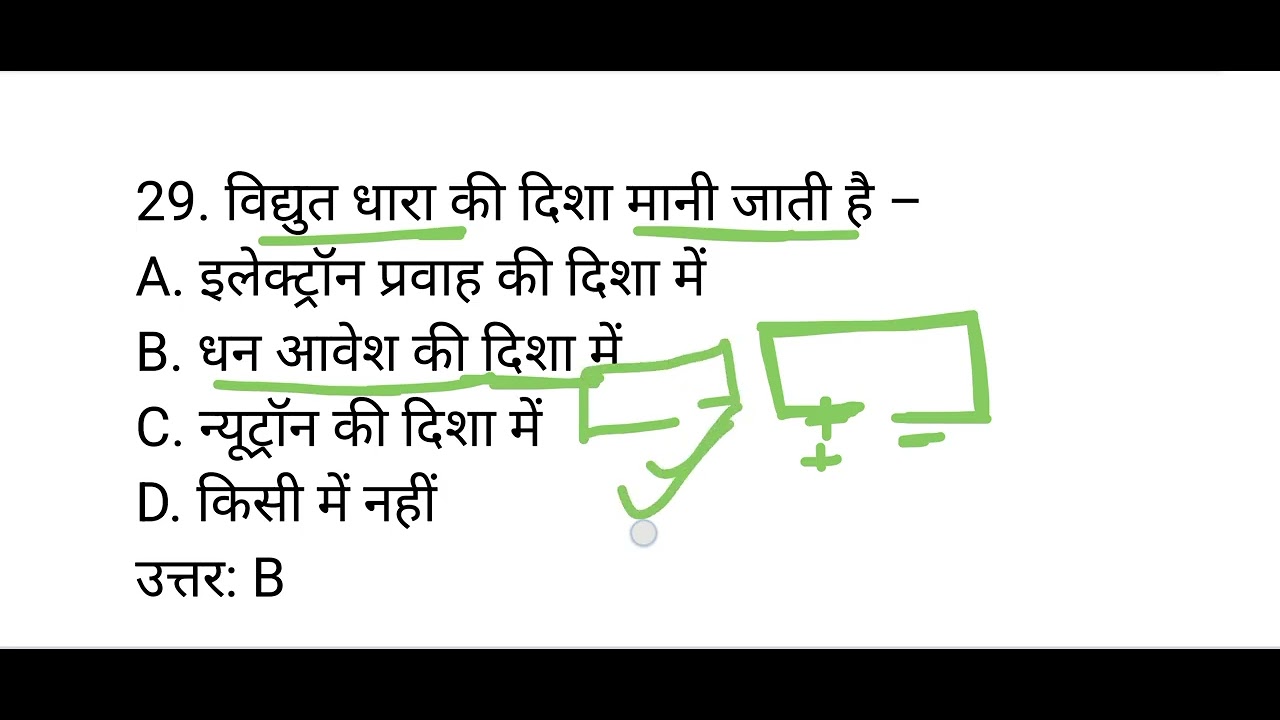 29. विद्युत धारा की दिशा मानी जाती है –
A. इलेक्ट्रॉन प्रवाह की दिशा में
B. धन आवेश की दिशा में
C. न्यूट्रॉन की दिशा में
D. किसी में नहीं
उत्तर: B
+
+